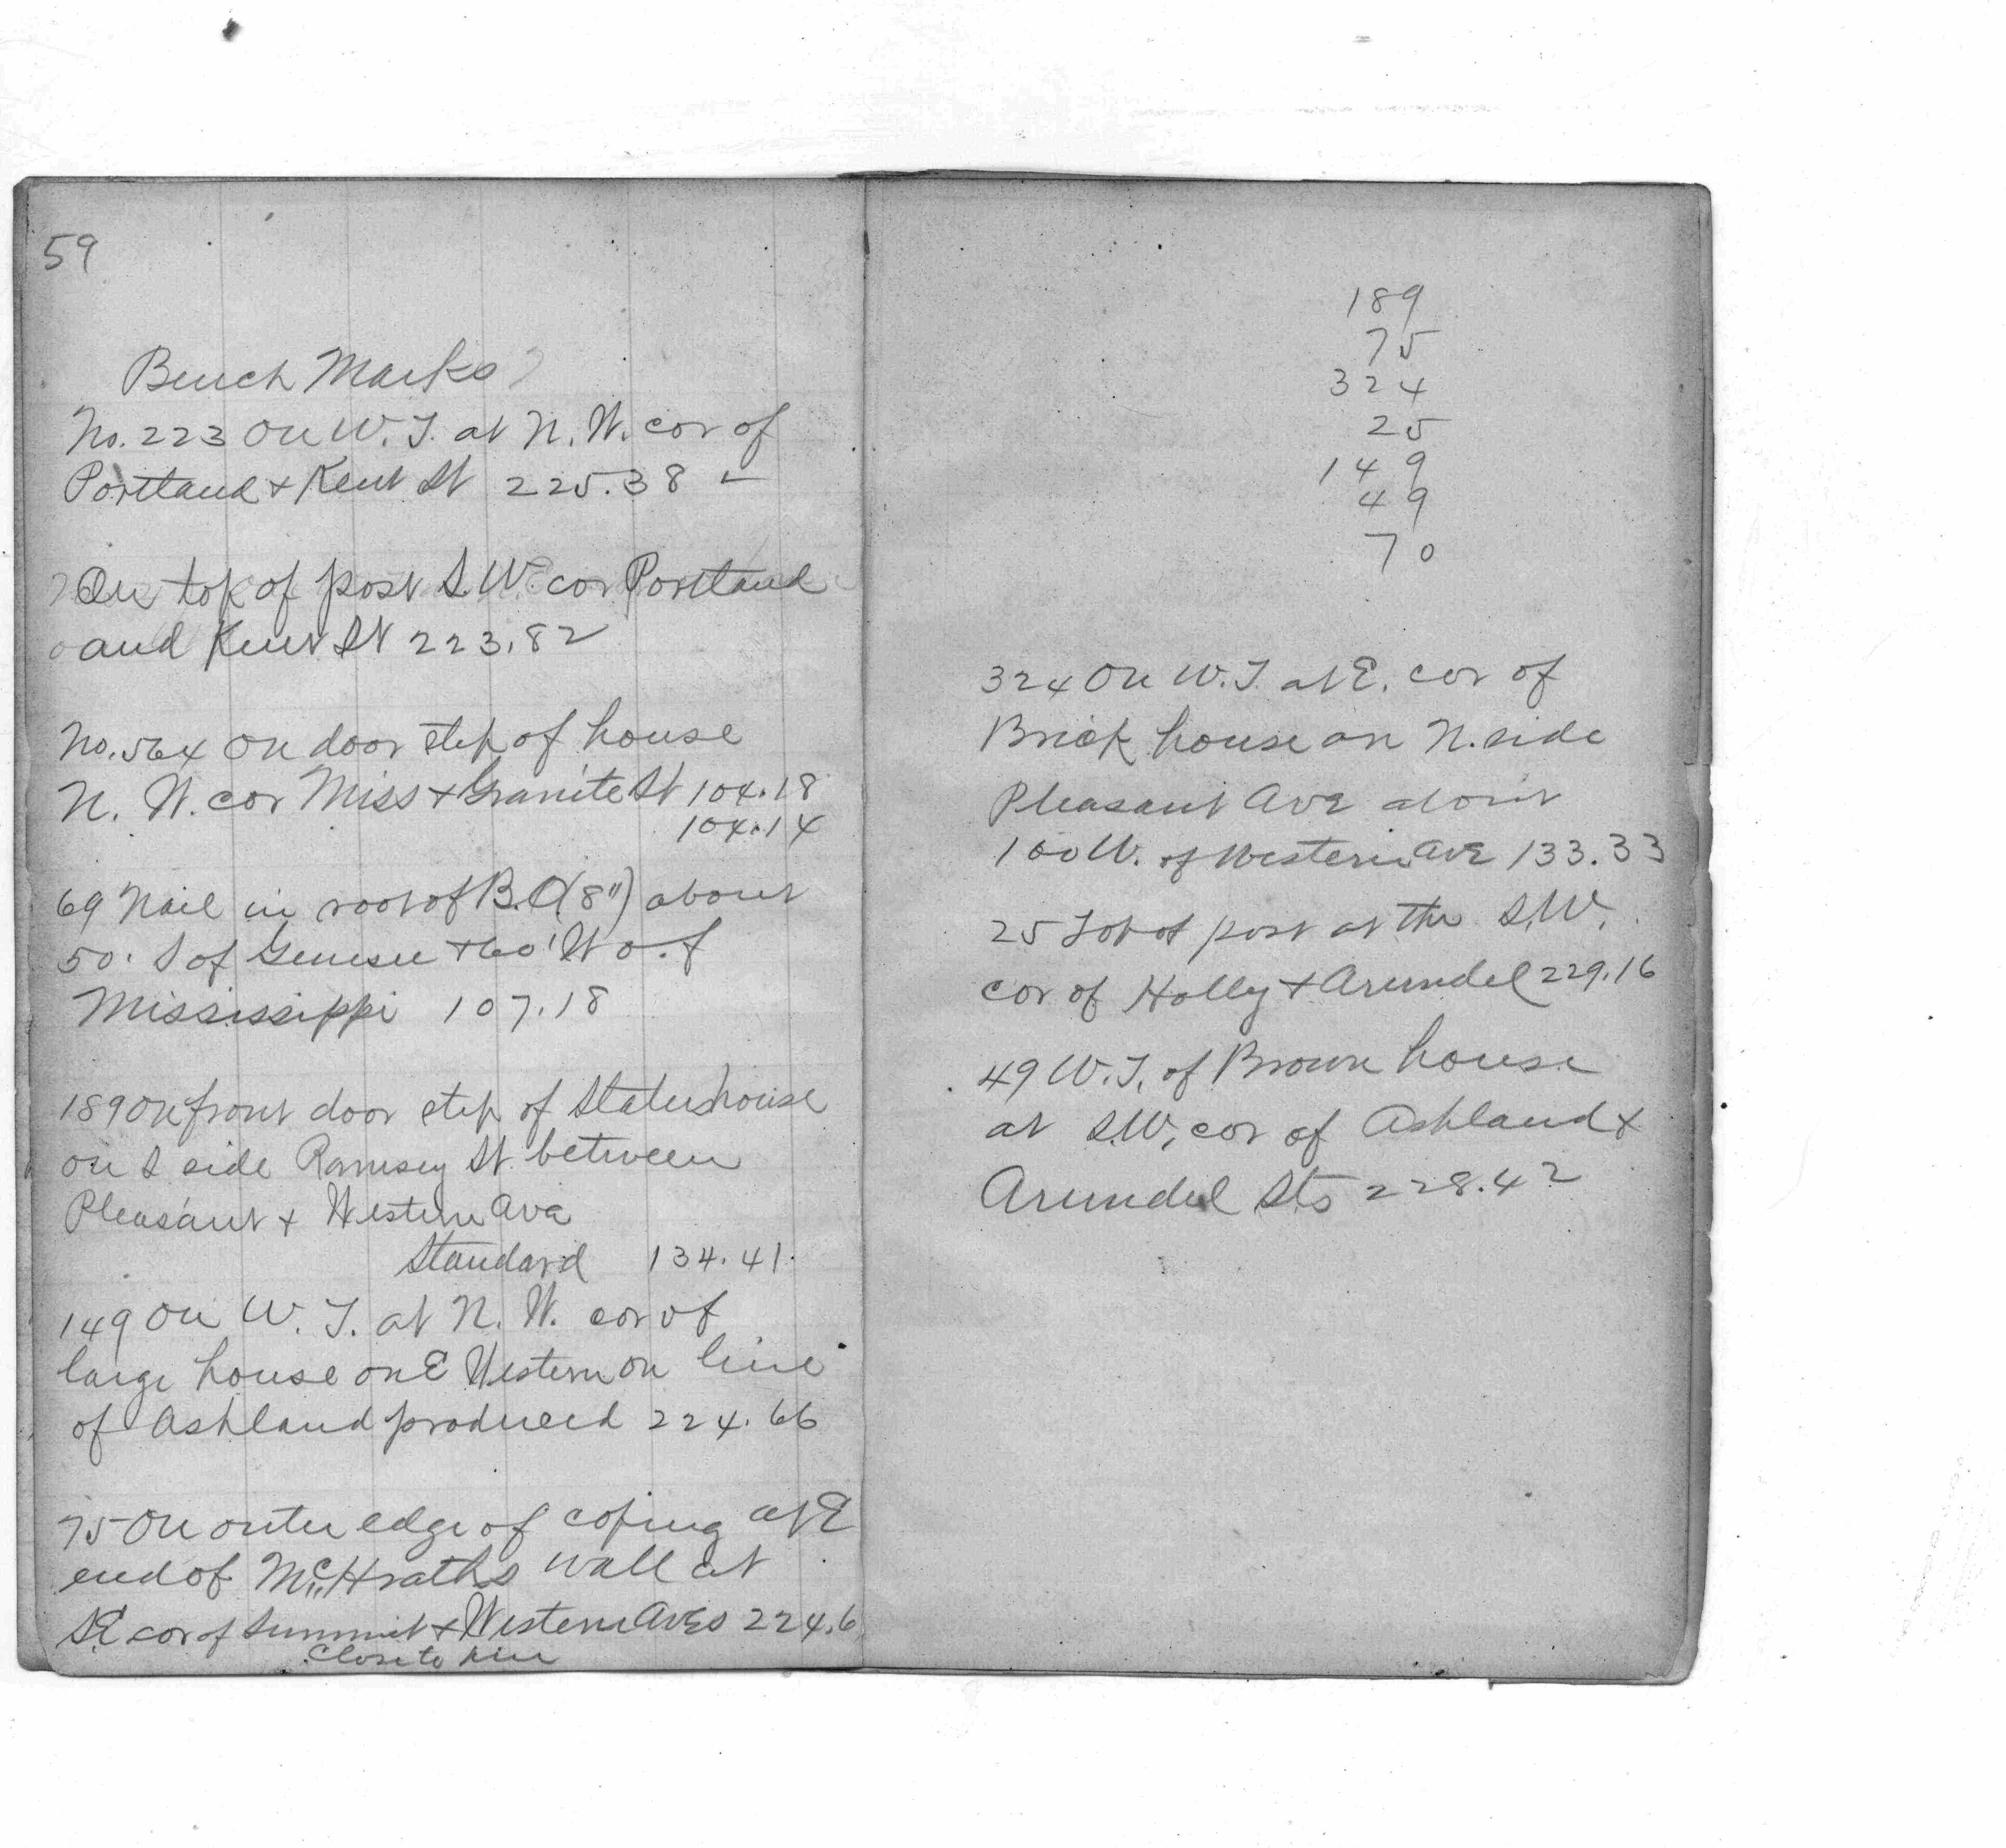 59
Bench Marks
No. 223 On W. T. at N. W. cor of
Portland + Kent St 225.38
On top of post S. W. cor Portland
and Kent St 223.82
No. 564 On door step of house
N. W. cor Miss + Granite St 104.18
104.14
69 Nail in root of B. O (8") about
50' S of Genesee + 60' W of
Mississippi 107.18
189 On front door step of Slaters house
on S side Ramsey St. between
Pleasant + Western Ave
Standard 134.41
149 On W. T. at N. W. cor of
large house on E Western on line
of Ashland produced 224.66
75 On outer edge of coping at E
end of wall at
SE cor of Summit + Western Aves 224.6
Close to
189
75
324
25
149
49
70
324 On W. T. at E. cor of
Brick house on N. side
Pleasant Ave about
100 W. of Western Ave 133.33
25 Top of post at the S.W.
cor of Holly + Arundel 229.16
49 W. T. of Brown house
at S.W. cor of Ashland +
Arundel Sts 228.42